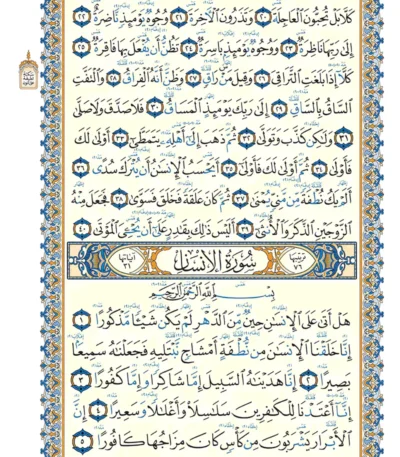 كَلَّا بَلْ تُحِبُّونَ الْعَاجِلَةَ ٢٠ وَتَذَرُونَ الْآخِرَةَ ٢١ وُجُوهٌ يَوْمَئِذٍ نَّاضِرَةٌ ٢٢
إِلَىٰ رَبِّهَا نَاظِرَةٌ ٢٣ وَوُجُوهٌ يَوْمَئِذٍ بَاسِرَةٌ ٢٤ تَظُنُّ أَن يُفْعَلَ بِهَا فَاقِرَةٌ ٢٥
كَلَّا إِذَا بَلَغَتِ التَّرَاقِيَ ٢٦ وَقِيلَ مَنْ رَاقٍ ٢٧ وَظَنَّ أَنَّهُ الْفِرَاقُ ٢٨ وَالْتَفَّتِ
السَّاقُ بِالسَّاقِ ٢٩ إِلَىٰ رَبِّكَ يَوْمَئِذٍ الْمَسَاقُ ٣٠ فَلَا صَدَّقَ وَلَا صَلَّىٰ
٣١ وَلَٰكِن كَذَّبَ وَتَوَلَّىٰ ٣٢ ثُمَّ ذَهَبَ إِلَىٰ أَهْلِهِ يَتَمَطَّىٰ ٣٣ أَوْلَىٰ لَكَ
فَأَوْلَىٰ ٣٤ ثُمَّ أَوْلَىٰ لَكَ فَأَوْلَىٰ ٣٥ أَيَحْسَبُ الْإِنسَٰنُ أَن يُتْرَكَ سُدًى ٣٦
أَلَمْ يَكُ نُطْفَةً مِّن مَّنِيٍّ يُمْنَىٰ ٣٧ ثُمَّ كَانَ عَلَقَةً فَخَلَقَ فَسَوَّىٰ ٣٨ فَجَعَلَ مِنْهُ
الزَّوْجَيْنِ الذَّكَرَ وَالْأُنثَىٰ ٣٩ أَلَيْسَ ذَٰلِكَ بِقَٰدِرٍ عَلَىٰ أَن يُحْۦِيَ الْمَوْتَىٰ ٤٠
ترتيبها ٧٦ سُورَةُ الْإِنسَانِ آياتها ٣١
بِسْمِ اللَّهِ الرَّحْمَٰنِ الرَّحِيمِ
هَلْ أَتَىٰ عَلَى الْإِنسَٰنِ حِينٌ مِّنَ الدَّهْرِ لَمْ يَكُن شَيْئًا مَّذْكُورًا ١
إِنَّا خَلَقْنَا الْإِنسَٰنَ مِن نُّطْفَةٍ أَمْشَاجٍ نَّبْتَلِيهِ فَجَعَلْنَٰهُ سَمِيعًا
بَصِيرًا ٢ إِنَّا هَدَيْنَٰهُ السَّبِيلَ إِمَّا شَاكِرًا وَإِمَّا كَفُورًا ٣
إِنَّا أَعْتَدْنَا لِلْكَٰفِرِينَ سَلَٰسِلَا وَأَغْلَٰلًا وَسَعِيرًا ٤ إِنَّ
الْأَبْرَارَ يَشْرَبُونَ مِن كَأْسٍ كَانَ مِزَاجُهَا كَافُورًا ٥